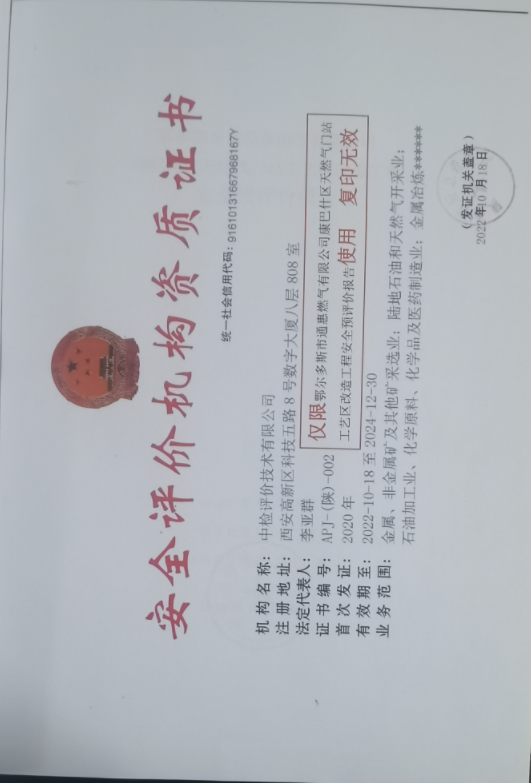 安全评价机构资质证书
统一社会信用代码:91610131667968167Y
机构名称:中检评价技术有限公司
注册地址:西安高新区科技五路8号数字大厦八层808室
法定代表人:李亚群
证书编号:APJ-(陕)-002
首次发证:2020年
有效期至:2022-10-18至2024-12-30
业务范围:金属、非金属矿及其他矿采选业;陆地石油和天然气开采业;
石油加工业、化学原料、化学品及医药制造业;金属冶炼******
仅限鄂尔多斯市通惠燃气有限公司康巴什区天然气门站
工艺区改造工程安全预评价报告使用 复印无效
(发证机关盖章)
2022年10月18日